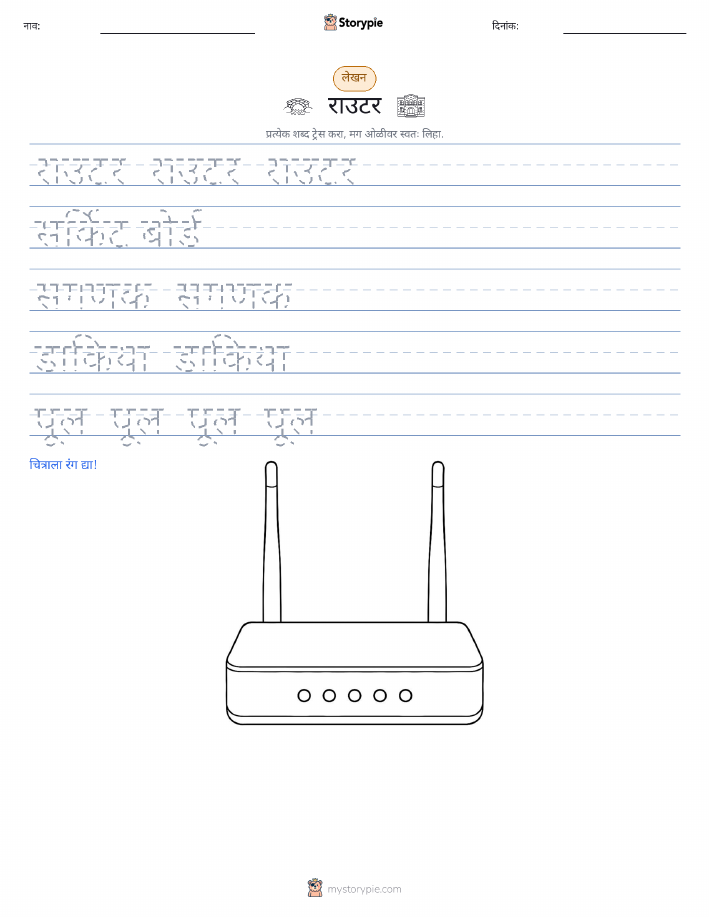 नाव: Storypie दिनांक:
लेखन
राउटर
प्रत्येक शब्द ट्रेस करा, मग ओळीवर स्वतः लिहा.
राउटर राउटर राउटर
सर्किट बोर्ड
संगणक संगणक
डाकिया डाकिया
पूल पूल पूल पूल
चित्राला रंग द्या!
mystorypie.com